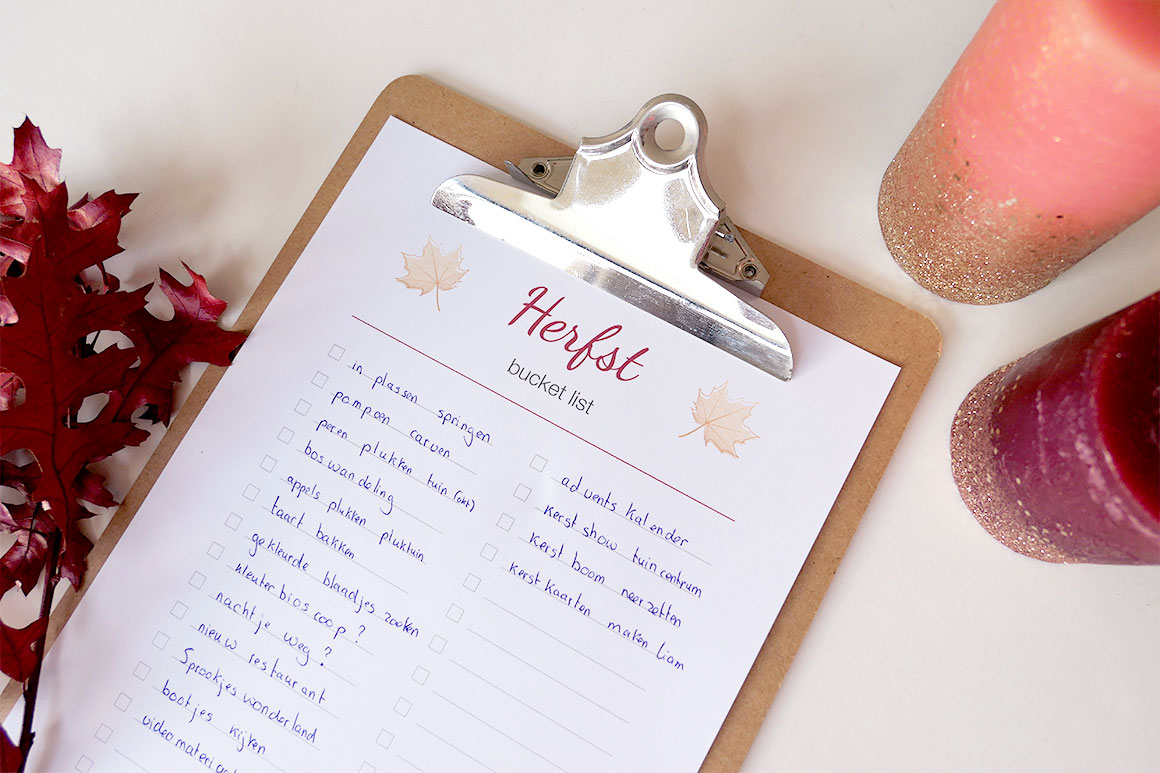 Herfst
bucket list
in plassen springen
pompoen carven
peren plukken tuin (okt)
boswandeling
appels plukken pluktuin
taart bakken
gekleurde blaadjes zoeken
kleuterbioscoop?
nachtje weg?
nieuw restaurant
Sprookjeswonderland
bootjes kijken
advents kalender
Kerstshow tuincentrum
Kerstboom neerzetten
Kerstkaarten maken Liam